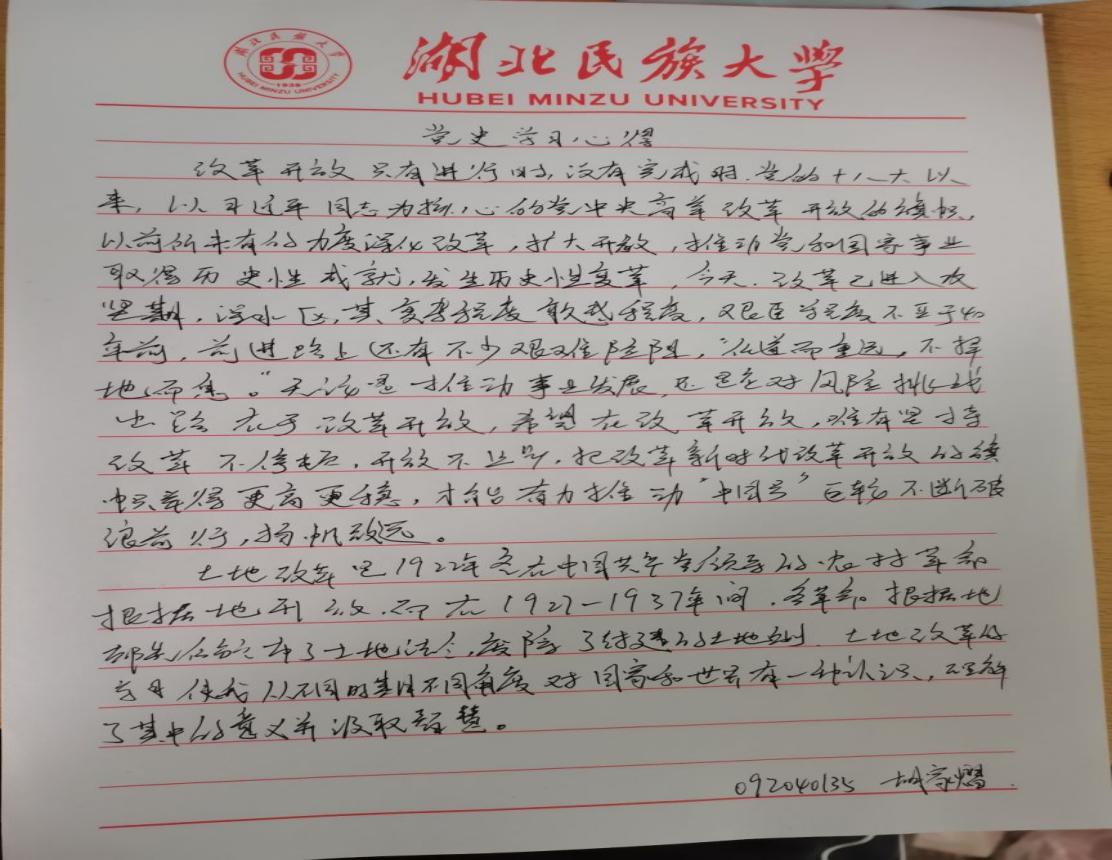 湖北民族大学
HUBEI MINZU UNIVERSITY
湖北民族大学
HUBEI MINZU UNIVERSITY
1938
党史学习心得
改革开放只有进行时,没有完成时.党的十八大以
来,以习近平同志为核心的党中央高举改革开放的旗帜,
以前所未有的力度深化改革,扩大开放,推动党和国家事业
取得历史性成就,发生历史性变革,今天.改革已进入攻
坚期,深水区,其复杂程度敏感程度,艰巨程度不亚于40
年前,前进路上还有不少艰难险阻,"任道而重远,不择
地而息。"无论是推动事业发展,还是应对风险挑战
出路在于改革开放,希望在改革开放,唯有坚持
改革不停顿,开放不止步,把改革新时代改革开放的旗
帜举得更高更稳,才能有力推动"中国号"巨轮不断破
浪前行,扬帆致远。
土地改革是1922年 在中国共产党领导的农村革命
根据地开 而在1927-1937年间.各革命根据地
都先后 布了土地法令,废除了封建的土地 土地改革的
学习使我从不同时期不同角度对国家和世界有一种认识,
了其中的意义并汲取 慧。
092040135 家熠